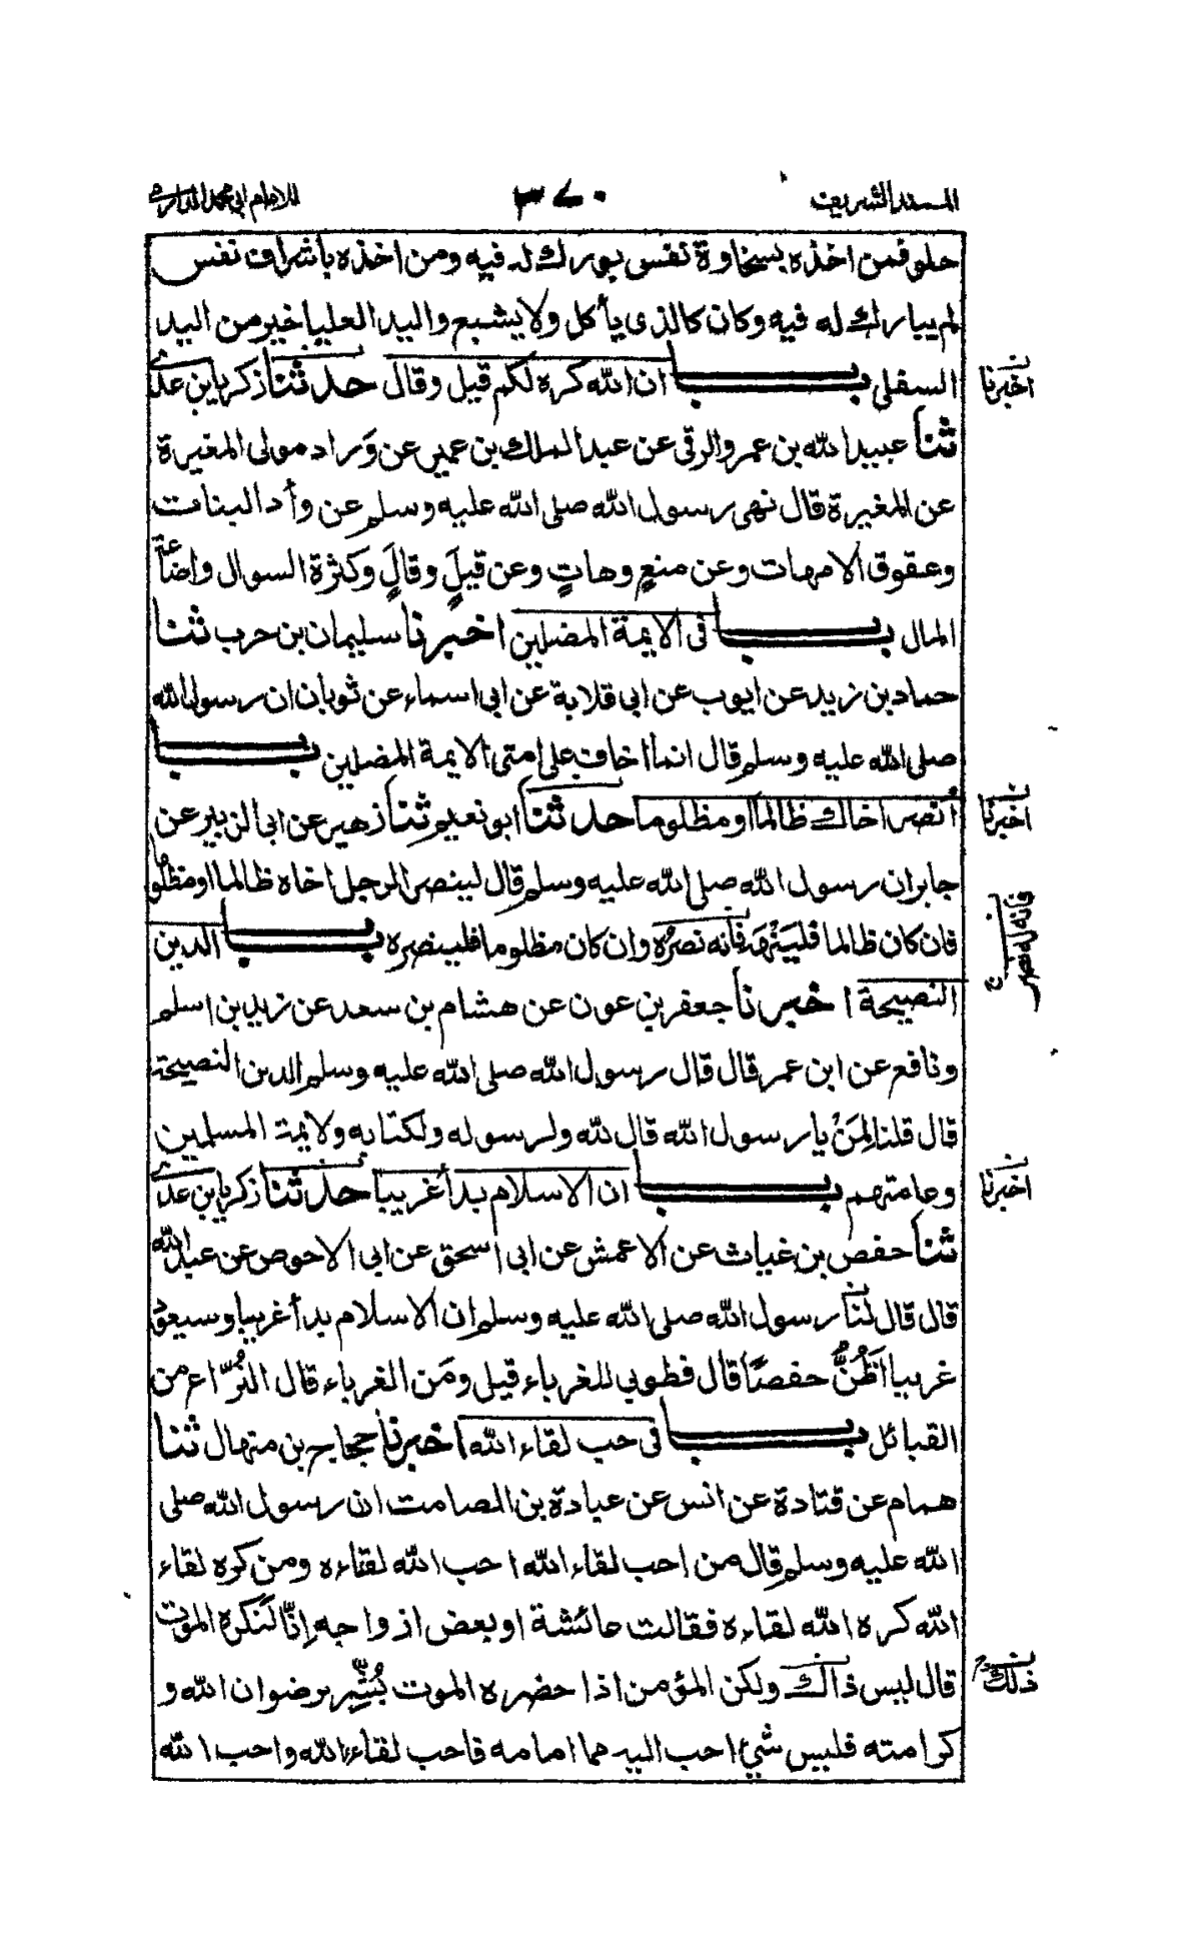 المسند الشريف ٣٧٠ للامام ابي محمد الدارمي
حلو فمن اخذه بسخاوة نفس بورك له فيه ومن اخذه باشراف نفس
لم يبارك له فيه وكان كالذى يأكل ولا يشبع واليد العليا خير من اليد
السفلى باب ان الله كره لكم قيل وقال حدثنا زكريا بن عدي
اخبرنا
ثنا عبيد الله بن عمرو الرقى عن عبد الملك بن عمير عن وَراد مولى المغيرة
عن المغيرة قال نهى رسول الله صلى الله عليه وسلم عن وأد البنات
وعقوق الامهات وعن منعٍ وهاتٍ وعن قيلٍ وقالٍ وكثرة السوال واضاعة
المال باب فى الايمة المضلين اخبرنا سليمان بن حرب ثنا
حماد بن زيد عن ايوب عن ابى قلابة عن ابى اسماء عن ثوبان ان رسول الله
صلى الله عليه وسلم قال انما اخاف على امتى الايمة المضلين باب
أنصر اخاك ظالما او مظلوما حدثنا ابو نعيم ثنا زهير عن ابى الزبير عن
اخبرنا
جابر ان رسول الله صلى الله عليه وسلم قال لينصر الرجل اخاه ظالما او مظلوما
فان كان ظالما فليَنْهَه فانه نصرُه وان كان مظلوما فلينصره باب الدين
فانه له نصر
النصيحة اخبرنا جعفر بن عون عن هشام بن سعد عن زيد بن اسلم
ونافع عن ابن عمر قال قال رسول الله صلى الله عليه وسلم الدين النصيحة
قال قلنا لِمَنْ يا رسول الله قال لله ولرسوله ولكتابه ولايمة المسلمين
وعامتهم باب ان الاسلام بدأ غريبا حدثنا زكريا بن عدي
اخبرنا
ثنا حفص بن غياث عن الاعمش عن ابى اسحق عن ابى الاحوص عن عبد الله
قال قال لنا رسول الله صلى الله عليه وسلم ان الاسلام بدأ غريبا وسيعود
غريبا اَظُنُّ حفصًا قال فطوبى للغرباء قيل ومَن الغرباء قال النُزّاع من
القبائل باب فى حب لقاء الله اخبرنا حجاج بن منهال ثنا
همام عن قتادة عن انس عن عبادة بن الصامت ان رسول الله صلى
الله عليه وسلم قال من احب لقاء الله احب الله لقاءه ومن كره لقاء
الله كره الله لقاءه فقالت عائشة او بعض ازواجه اِنّا لَنكره الموت
قال ليس ذاك ولكن المؤمن اذا حضره الموت بُشِّر برضوان الله و
ذلك
كرامته فليس شيئ احب اليه مما امامه فاحب لقاء الله واحب الله